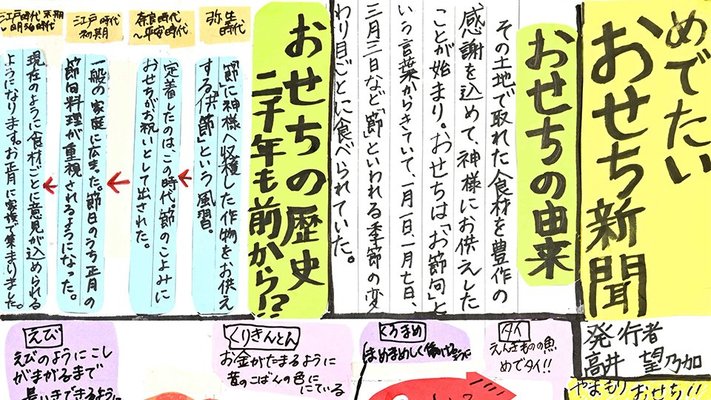 めでたい
おせち新聞
発行者
高井 望乃加
やまもりおせち!!
おせちの由来
その土地で取れた食材を豊作の
感謝を込めて、神様にお供えした
ことが始まり。おせちは「お節句」と
いう言葉からきていて、一月一日、一月七日、
三月三日など「節」といわれる季節の変
わり目ごとに食べられていた。
おせちの歴史
二千年も前から!?
弥生時代
「節」に神様へ収穫した作物をお供え
する「供節」という風習。
奈良時代
〜平安時代
定着したのは、この時代。節のこよみに
おせちがお祝いとして出された。
江戸時代
初期
一般の家庭に広まった節日のうち正月の
節句料理が重視されるようになった。
江戸時代末期
〜明治時代
現在のように食材ごとに意見が込められる
ようになります。お正月に家族で集まりました。
タイ
えんぎものの魚
めでタイ!!
くろまめ
まめまめしく
くりきんとん
お金がたまるように
昔のこばんの色に
にている
えび
えびのようにこし
がまがるまで
長いきできるように